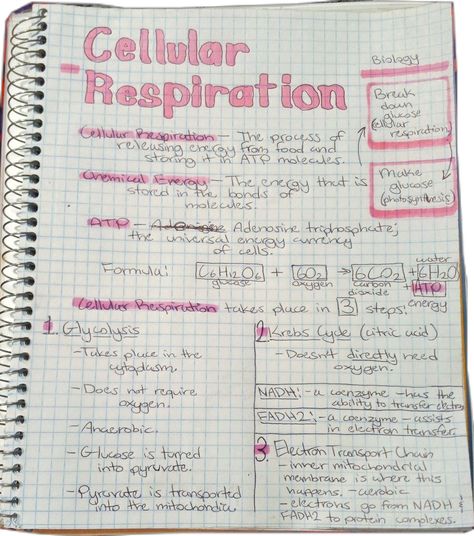 Cellular
Respiration
Biology
Break
down
glucose
(cellular
respiration)
Make
glucose
(photosynthesis)
Cellular Respiration – The process of
releasing energy from food and
storing it in ATP molecules.
Chemical Energy – The energy that is
stored in the bonds of
molecules.
ATP – Adenosine triphosphate;
the universal energy currency
of cells.
Formula: C6H12O6 + 6O2 → 6CO2 + 6H2O + ATP
glucose oxygen carbon dioxide water energy
Cellular Respiration takes place in 3 steps:
1. Glycolysis
-Takes place in the
cytoplasm.
-Does not require
oxygen.
-Anaerobic.
-Glucose is turned
into pyruvate.
-Pyruvate is transported
into the mitochondria.
2. Krebs Cycle (citric acid)
-Doesn't directly need
oxygen.
NADH:-a coenzyme -has the
ability to transfer electrons
FADH2:-a coenzyme -assists
in electron transfer.
3. Electron Transport Chain
-inner mitochondrial
membrane is where this
happens. -aerobic
-electrons go from NADH &
FADH2 to protein complexes.